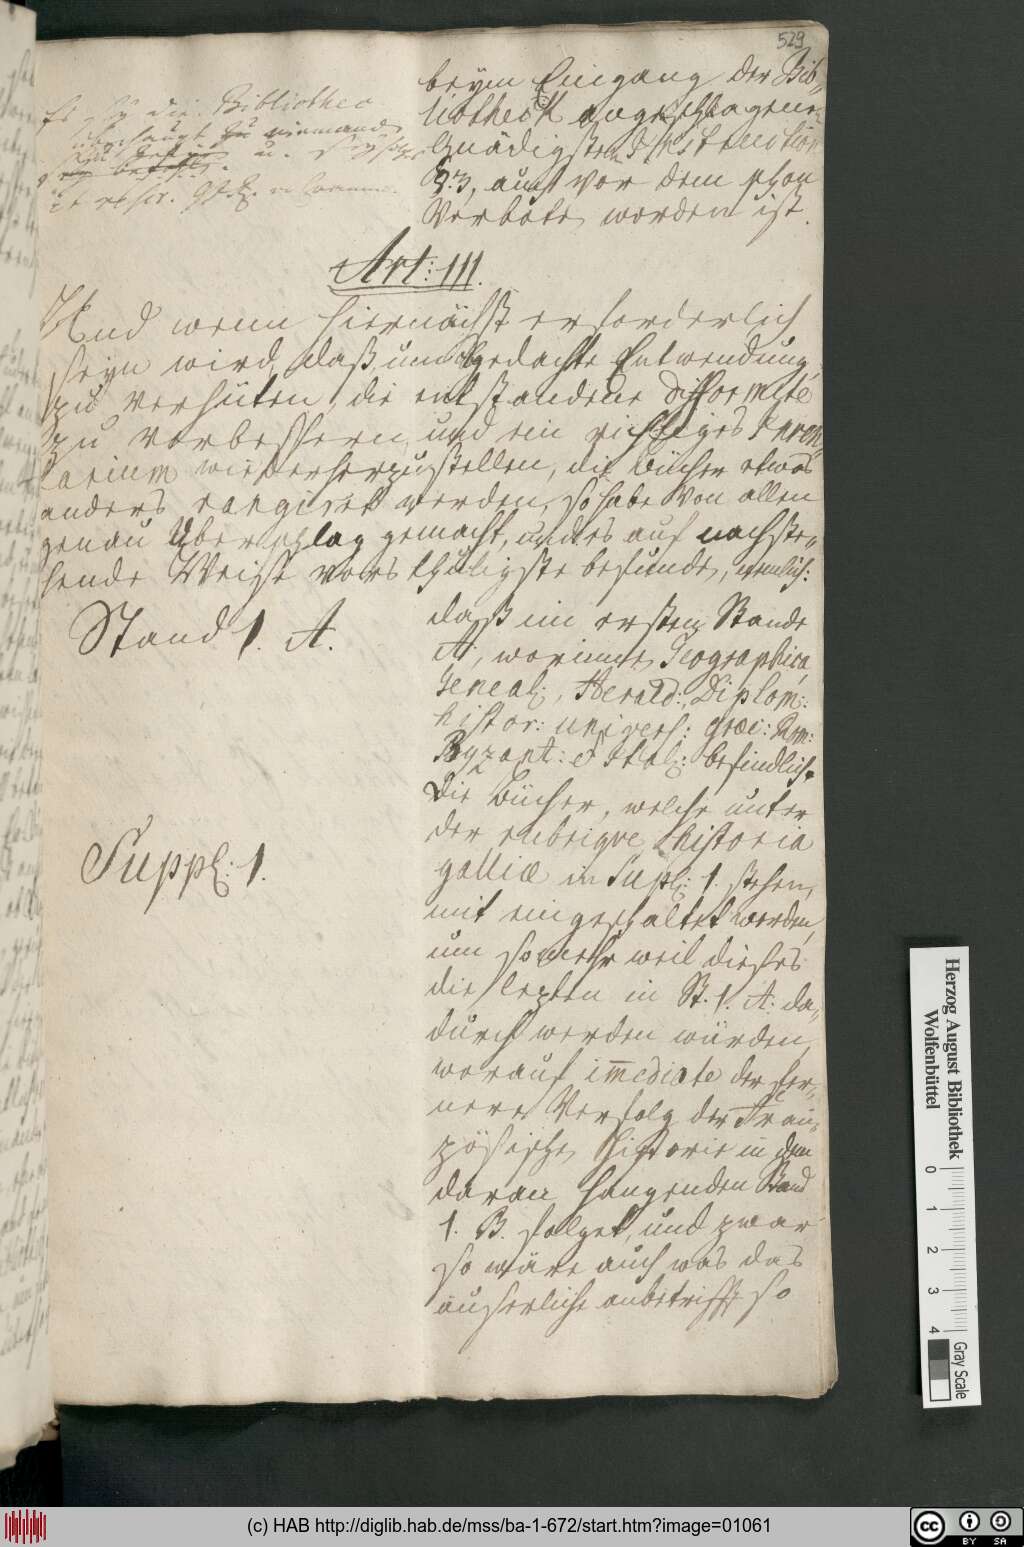 529
beÿm Eingang der Bib-
liotheck angeschlagenen
Gnädigsten Instruction
§. 3, auch vor dem schon
Verboten worden ist.
Bibliothec
überhaupt niemand
Art: III.
Und wenn hiernächst erforderlich
seÿn wird, daß um obgedachte Entwendung
zu verhüten, die entstandene difformité
zu verbessern, und ein richtiges Inven-
tarium wiederherzustellen, die Bücher etwas
anders rangiret werden, so habe von allen
genau Überschlag gemacht, und es auf nachste-
hende Weise vors thuligste befunden, nemlich:
Stand 1. A.
daß im ersten Stande
A, worinnen Geographica
Geneal:, Herald:, Diplom:
histor: univers: græc: Rom:
Byzant: et Ital: befindlich,
die Bücher, welche unter
der rubrique historia
galliæ in Supl: 1. stehen,
Suppl: 1.
mit eingeschaltet werden,
um so mehr weil dieses
die lezten in St. 1. A: da-
durch werden würden,
worauf immediate der fer-
nere Verfolg der Fran-
zösischen Historie in dem
daran hangenden Stand
1. B. folget, und zwar
so wäre auch was das
äuserliche anbetrifft so
Herzog August Bibliothek
Wolfenbüttel
0 1 2 3 4
Gray Scale
(c) HAB http://diglib.hab.de/mss/ba-1-672/start.htm?image=01061
cc BY SA